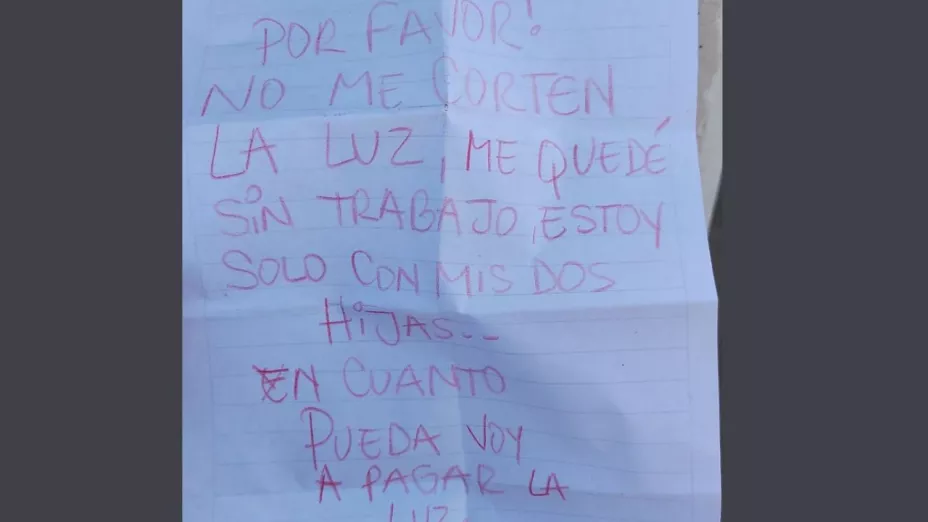 POR FAVOR!
NO ME CORTEN
LA LUZ, ME QUEDÉ
SiN TRABAJO, ESTOY
SOLO CON MIS DOS
HiJAS..
EN CUANTO
PUEDA VOY
A PAGAR LA
LUZ.